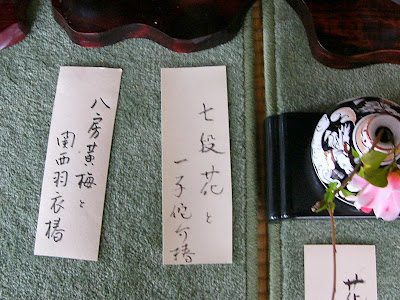 花
七段花と
一子侘助椿
八房黄梅と
関西羽衣椿